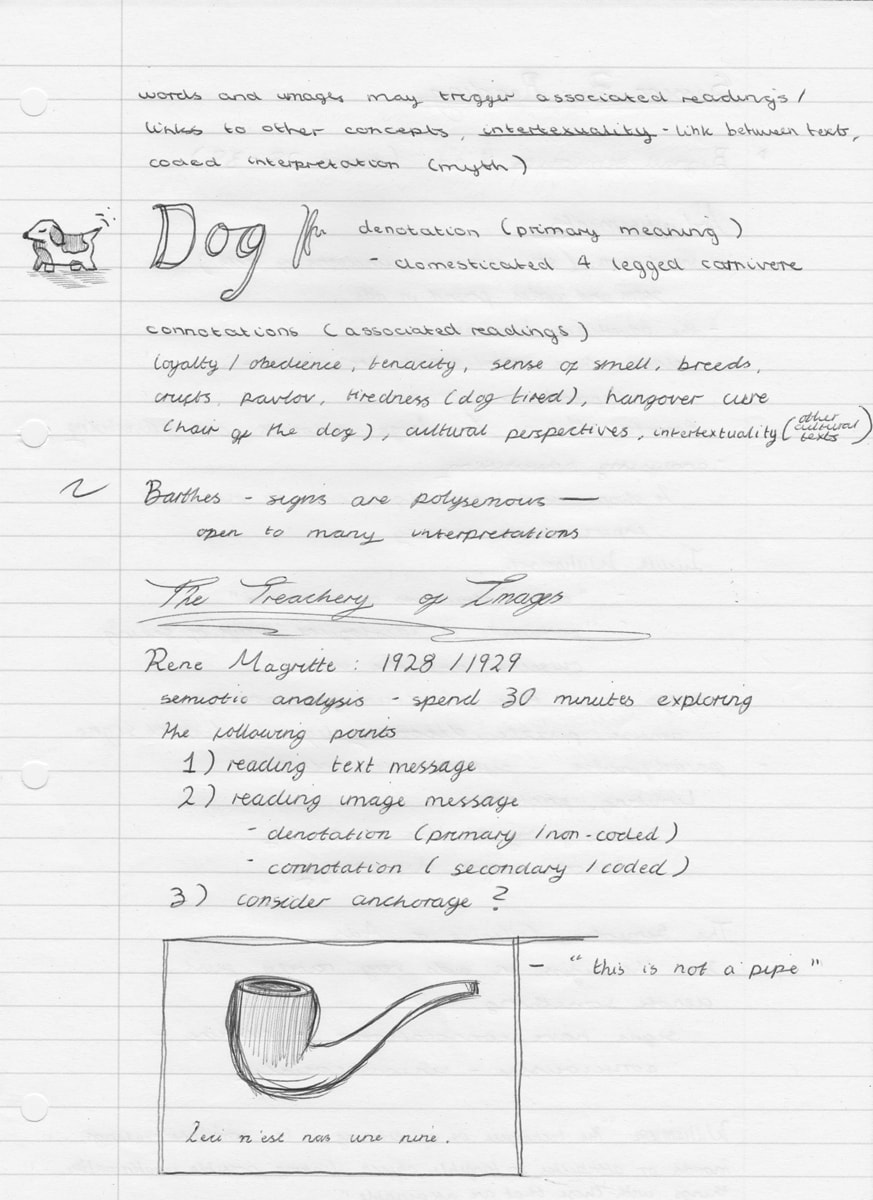 words and images may trigger associated readings /
links to other concepts, intertexuality - link between texts,
coded interpretation (myth)
Dog
denotation (primary meaning)
- domesticated 4 legged carnivere
connotations (associated readings)
loyalty / obedience, tenacity, sense of smell, breeds,
crufts, pavlov, tiredness (dog tired), hangover cure
(hair of the dog), cultural perspectives, intertextuality (other cultural texts)
Barthes - signs are polysemous —
open to many interpretations
The Treachery of Images
Rene Magritte : 1928 / 1929
semiotic analysis - spend 30 minutes exploring
the following points
1) reading text message
2) reading image message
- denotation (primary / non-coded)
- connotation (secondary / coded)
3) consider anchorage ?
- "this is not a pipe"
n'est pas une pipe.